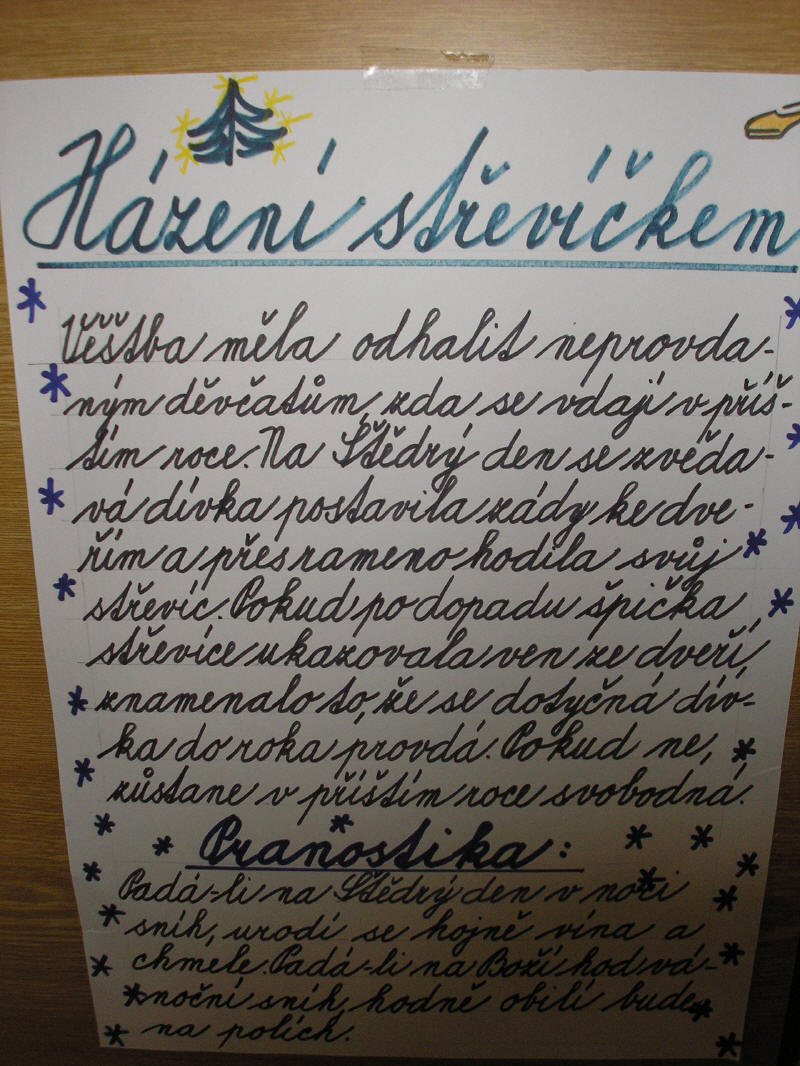 Házení střevíčkem
Věštba měla odhalit neprovda-
ným děvčatům, zda se vdají v příš-
tím roce. Na Štědrý den se zvěda-
vá dívka postavila zády ke dve-
řím a přes rameno hodila svůj
střevíc. Pokud po dopadu špička
střevíce ukazovala ven ze dveří,
znamenalo to, že se dotyčná dív-
ka do roka provdá. Pokud ne,
zůstane v příštím roce svobodná.
Pranostika:
Padá-li na Štědrý den v noci
sníh, urodí se hojně vína a
chmele. Padá-li na Boží hod vá-
noční sníh, hodně obilí bude
na polích.